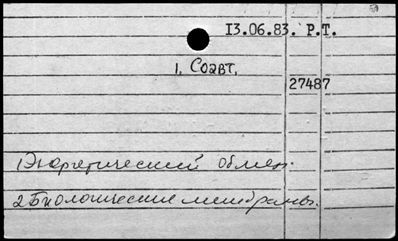 13.06.83. Р.Т.
1. Соавт.
27487
1 Энергетический обмен.
2 Биологические мембраны.